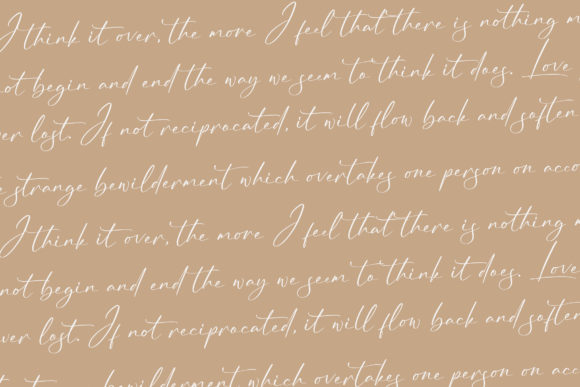 I think it over, the more I feel that there is nothing m
not begin and end the way we seem to think it does. Love
ver lost. If not reciprocated, it will flow back and soften
e strange bewilderment which overtakes one person on acco
I think it over, the more I feel that there is nothing m
not begin and end the way we seem to think it does. Love
ver lost. If not reciprocated, it will flow back and soften
bewilderment which overtakes one person on acco